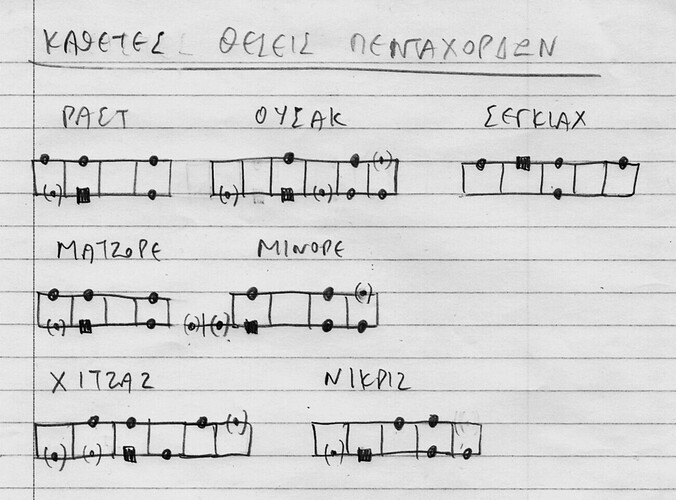 ΚΑΘΕΤΕΣ ΘΕΣΕΙΣ ΠΕΝΤΑΧΟΡΔΩΝ
ΡΑΣΤ ΟΥΣΑΚ ΣΕΓΚΙΑΧ
ΜΑΤΖΟΡΕ ΜΙΝΟΡΕ
ΧΙΤΖΑΖ ΝΙΚΡΙΖ